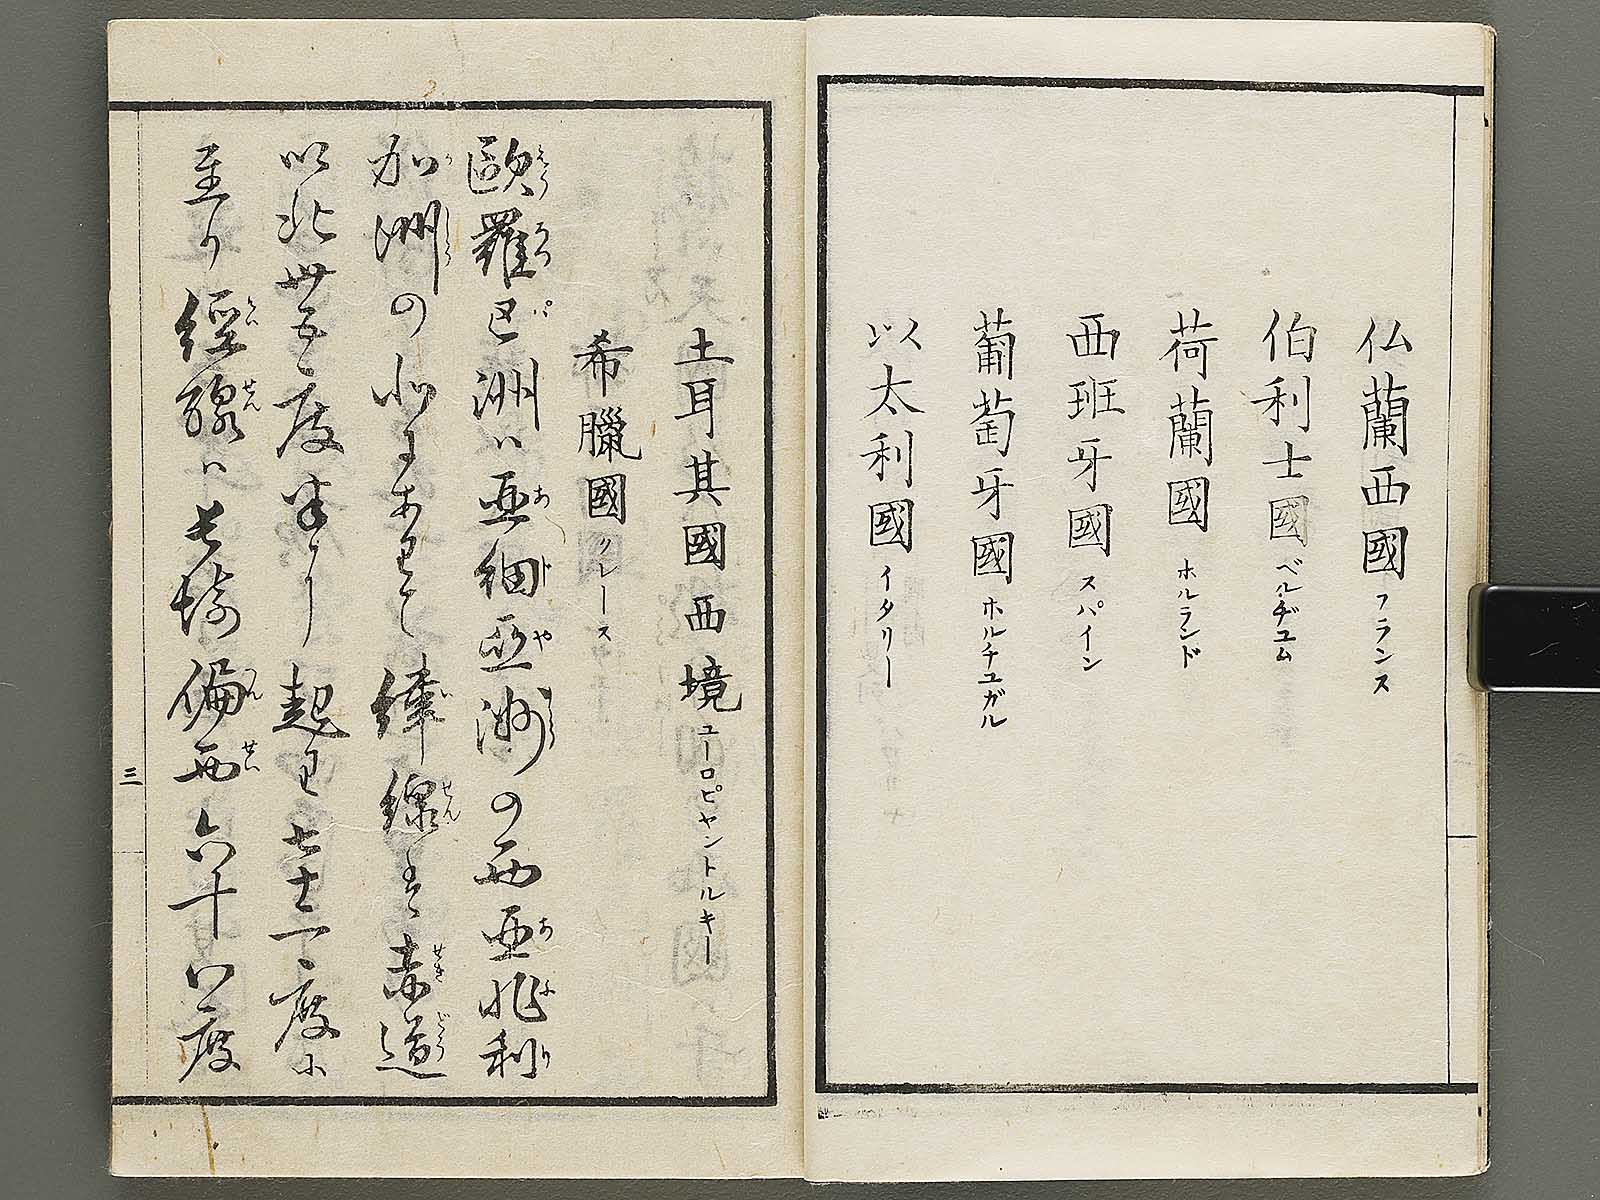 仏蘭西國 フランス
伯利士國 ベルヂユム
荷蘭國 ホルランド
西班牙國 スパイン
葡萄牙國 ホルチユガル
以太利國 イタリー
土耳其國西境 ユーロピヤントルキー
希臘國 クレース
歐羅巴洲ハ亜細亞洲の西亜非利
加洲の北にありて緯線ハ赤道
以北卅五度半より起り七十一度に
至り經線ハ長崎偏西六十八度
三